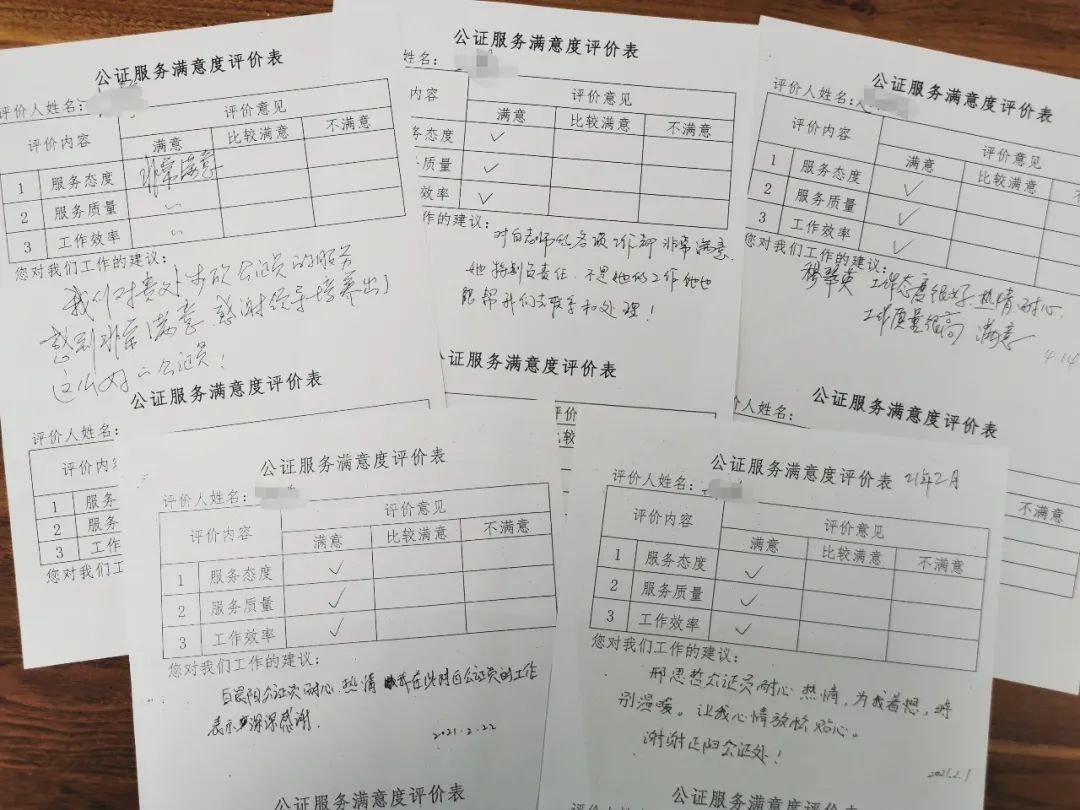 公证服务满意度评价表
评价人姓名:
评价内容 评价意见
满意 比较满意 不满意
1 服务态度 非常满意
2 服务质量 ✓
3 工作效率 ✓
您对我们工作的建议:
我们对贵处 公证员的服务
感到非常满意 感谢领导培养出
这么好的公证员!
公证服务满意度评价表
评价人姓名:
评价内容
1 服务
2 服务
3 工作
您对我们工
公证服务满意度评价表
姓名:
内容 评价意见
满意 比较满意 不满意
务态度 ✓
质量 ✓
效率 ✓
工作的建议:
对白老师的各项工作都非常满意.
她特别负责任.不是她的工作她也
能帮我们去联系和处理!
公证服务满意度评价表
评价
比较
公证服务满意度评价表
评价人姓名:
评价内容 评价意见
满意 比较满意 不
1 服务态度 ✓
2 服务质量 ✓
3 工作效率 ✓
您对我们工作的建议:
工作态度很好.热情耐心.
工作质量很高 满意
4.14
公证服务满意度评价表
价人姓名:
不满意
公证服务满意度评价表
评价人姓名:
评价内容 评价意见
满意 比较满意 不满意
1 服务态度 ✓
2 服务质量 ✓
3 工作效率 ✓
您对我们工作的建议:
白晨阳公证员耐心.热情 在此对白公证员的工作
表示深深感谢.
2021.2.22
公证服务满意度评价表
公证服务满意度评价表 21年2月
评价人姓名:
评价内容 评价意见
满意 比较满意 不满意
1 服务态度 ✓
2 服务质量 ✓
3 工作效率 ✓
您对我们工作的建议:
邢思哲公证员耐心热情,为我着想,特
别温暖。让我心情放松 贴心。
谢谢正阳公证处!
2021.2.1
公证服务满意度评价表